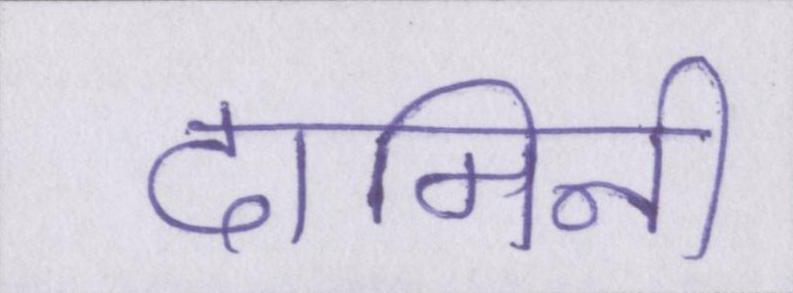 दामिनी